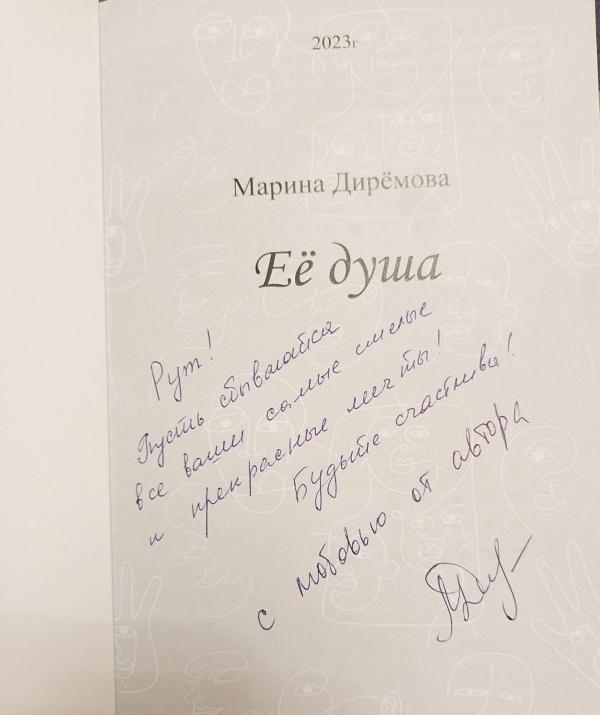 2023г
Марина Дирёмова
Её душа
Рут!
Пусть сбываются
все ваши самые смелые
и прекрасные мечты!
Будьте счастливы!
с любовью от автора